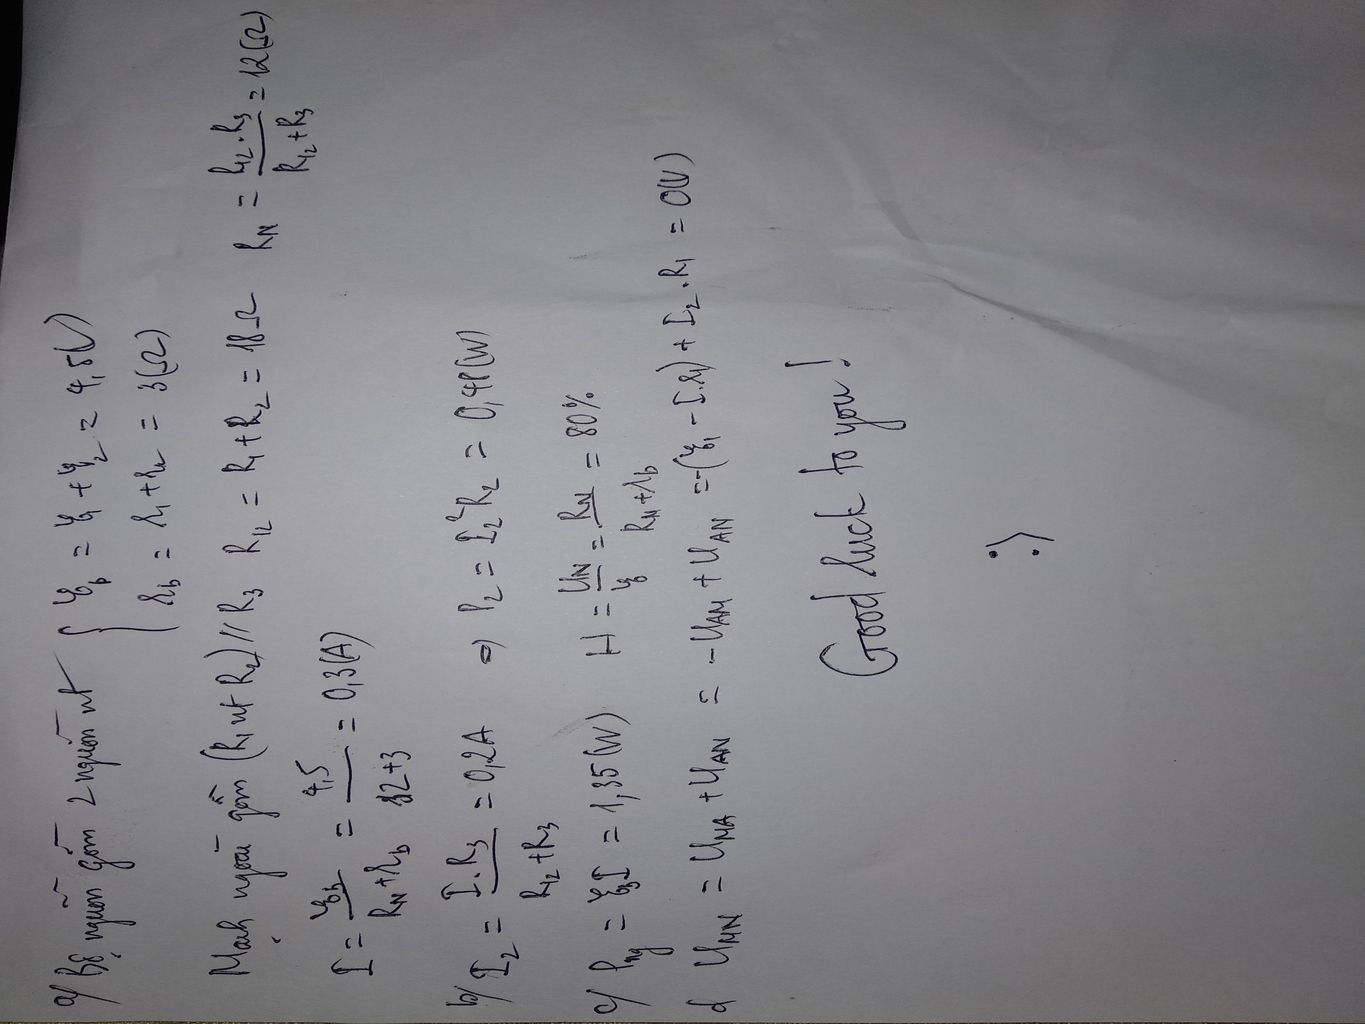 a/ Bộ nguồn gồm 2 nguồn nt { ξb = ξ1 + ξ2 = 4,5(V)
rb = r1 + r2 = 3(Ω)
Mạch ngoài gồm (R1 nt R2) // R3 R12 = R1 + R2 = 18Ω RN = R12.R3 / (R12 + R3) = 12(Ω)
I = ξb / (RN + rb) = 4,5 / (12+3) = 0,3(A)
b/ I2 = I.R3 / (R12 + R3) = 0,2A => P2 = I2²R2 = 0,48(W)
c/ Png = ξbI = 1,35(W) H = UN / ξb = RN / (RN + rb) = 80%
d UMN = UMA + UAN = -UAM + UAN = -(ξ1 - I.r1) + I2.R1 = 0(V)
Good luck to you!
:)